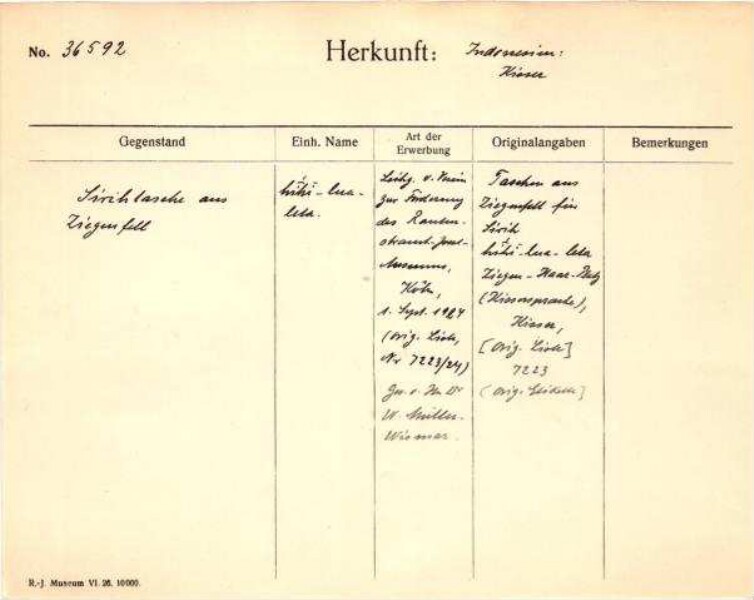 No. 36592
Herkunft: Indonesien:
Kisser
Gegenstand
Einh. Name
Art der
Erwerbung
Originalangaben
Bemerkungen
Sirihtasche aus
Ziegenfell
hihi-lua-
leta.
Leihg. v. Verein
zur Förderung
des Rauten-
strauch-Joest-
Museums,
Köln,
1. Sept. 1927
(orig. Liste,
Nr 7223/24)
Ges. v. Hn Dr
W. Müller-
Wismar.
Taschen aus
Ziegenfell für
Sirih
hihi-lua-leta
Ziegen-Haar-
(Kissersprache),
Kisser,
[orig. Liste]
7223
(orig. Etikett]
R.-J. Museum VI. 26. 10000.